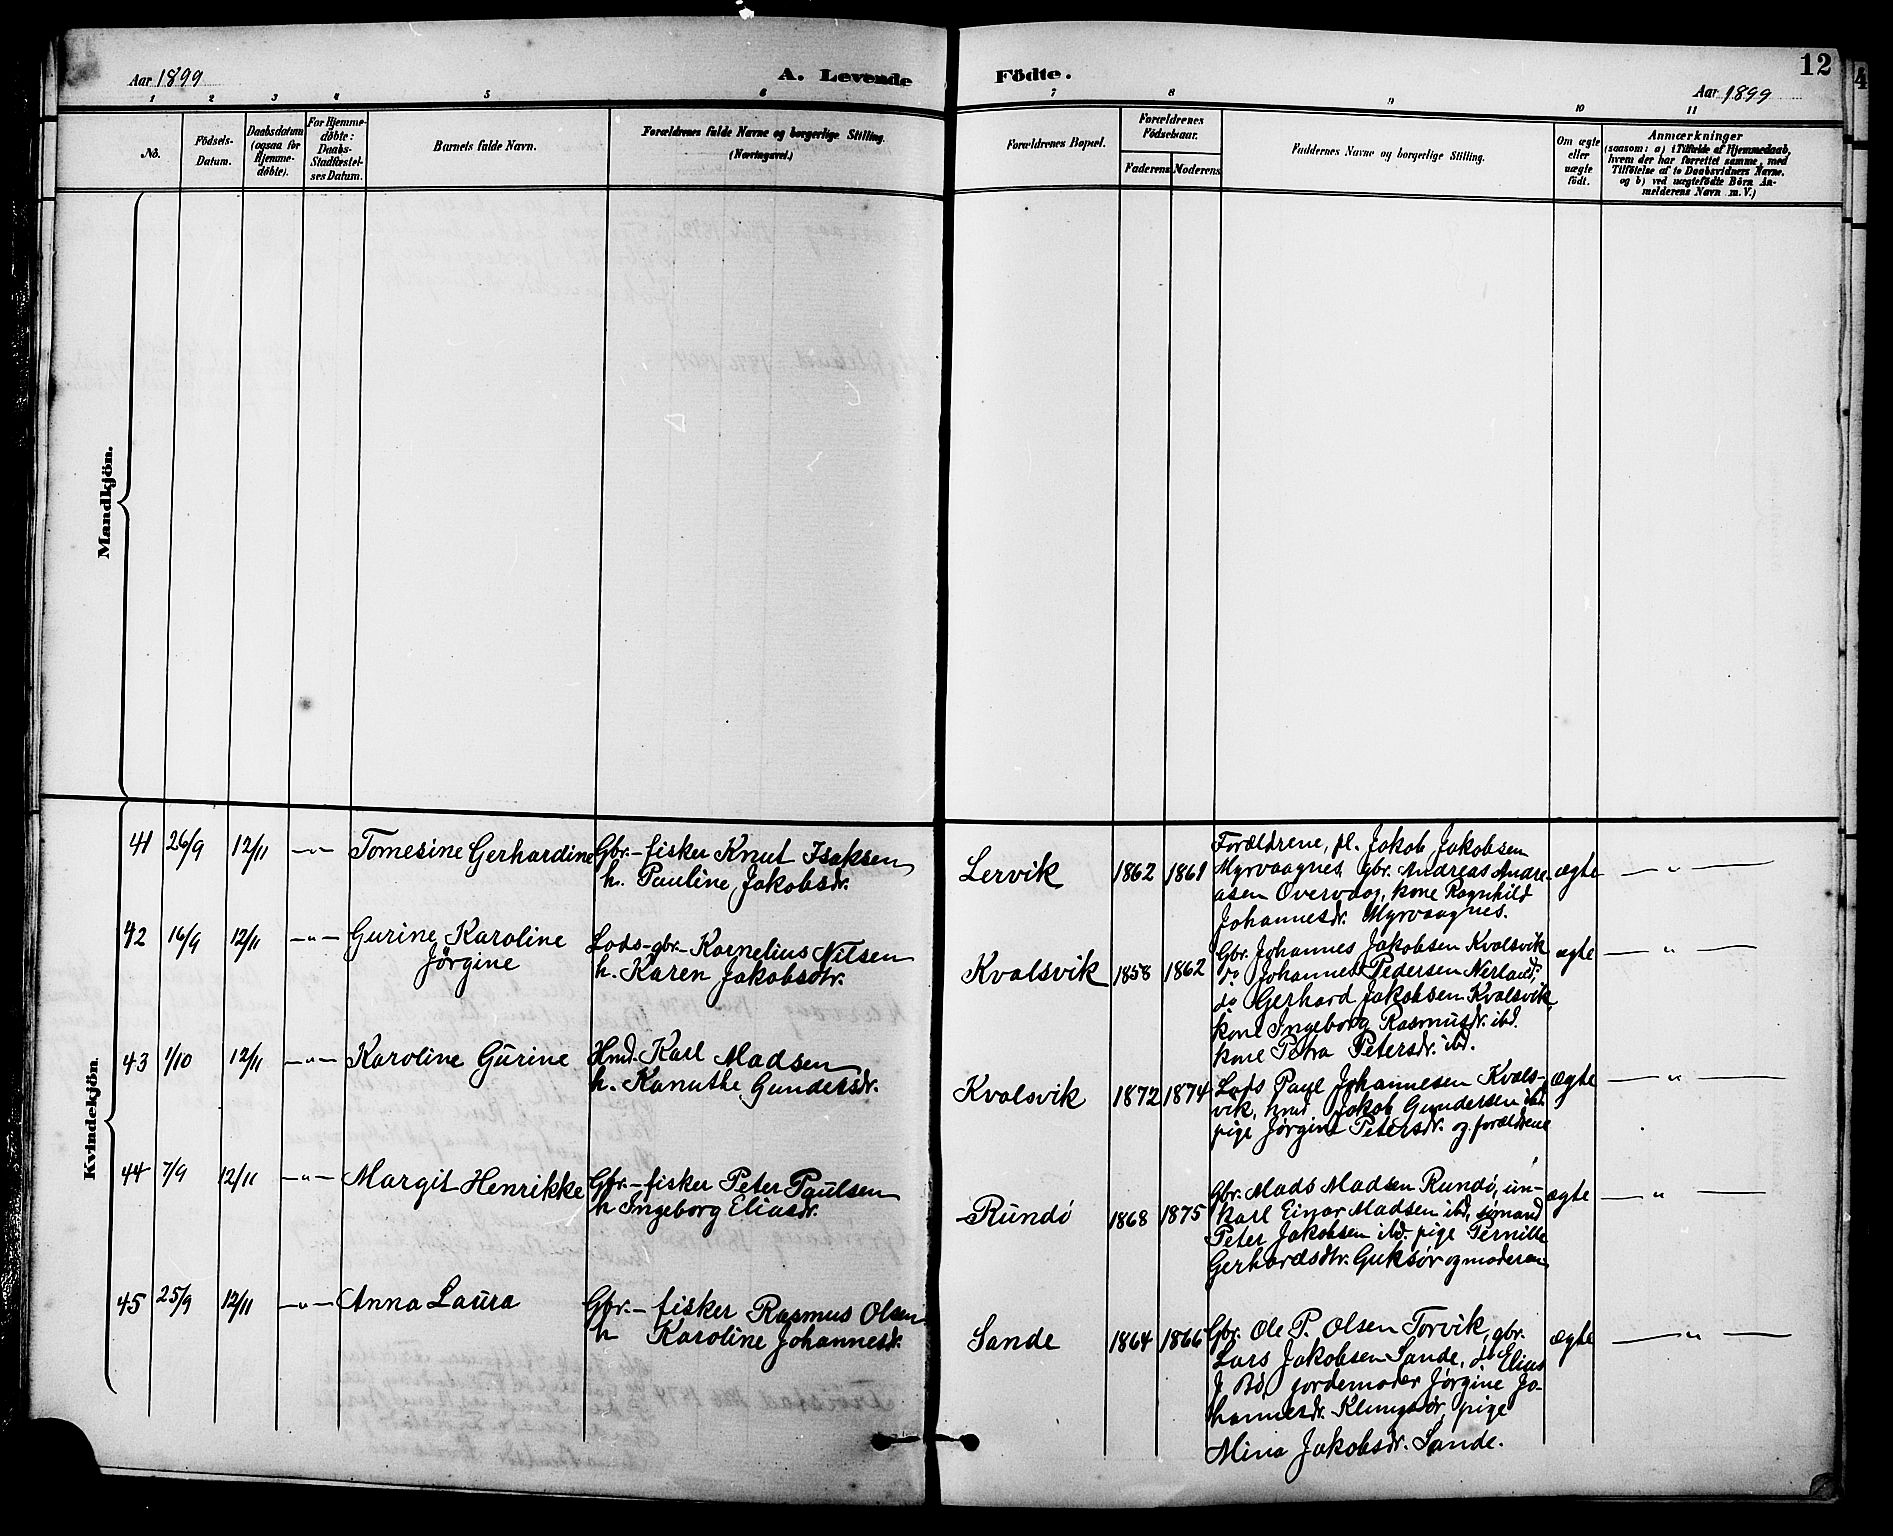 Aar 1899
A. Levende
Födte.
12
Aar 1899
1 2 3 4 5 6
7 8 9 10 11
No.
Födsels-
Datum.
Daabsdatum
(ogsaa for
Hjemme-
döbte).
For Hjemme-
döbte:
Daabs-
Stadfæstel-
ses Datum.
Barnets fulde Navn.
Forældrenes fulde Navne og borgerlige Stilling.
(Næringsvei.)
Forældrenes Bopæl.
Forældrenes
Födselsaar.
Faderens Moderens
Faddernes Navne og borgerlige Stilling.
Om ægte
eller
uægte
födt.
Anmærkninger
(saasom: a) i Tilfælde af Hjemmedaab,
hvem der har forrettet samme, med
Tilföielse af to Daabsvidners Navne.
og b) ved uægtefödte Börn An-
melderens Navn m. V.)
Mandkjön.
Kvindekjön.
41 26/9 12/11 —"— Tomesine Gerhardine
Gbr.-fisker Knut Isaksen
h. Pauline Jakobsdr.
Lervik 1862 1861
Forældrene, pl. Jakob Jakobsen
Myrvaagnes gbr. Andreas Andre-
asen Overvaag, kone Ragnhild
Johannesdr. Myrvaagnes.
ægte — " —
42 16/9 12/11 —"— Gurine Karoline
Jørgine
Lods-gbr- Kornelius Nilsen
h. Karen Jakobsdtr.
Kvalsvik 1858 1862
Gbr. Johannes Jakobsen Kvalsvik
do Johannes Pedersen Nerland,
do Gerhard Jakobsen Kvalsvik,
kone Ingeborg Rasmusdr. ibd.
kone Petra Petersdr. ibd.
ægte — " —
43 1/10 12/11 —"— Karoline Gurine
Hmd. Karl Madsen
h. Kanuthe Gundersdr.
Kvalsvik 1872 1874
Lods Paul Johannesen Kvals-
vik, hmd. Jakob Gundersen ibd.
pige Jørgine Petersdr. og forældrene
ægte — " —
44 7/9 12/11 —"— Margit Henrikke
Gbr.-fisker Peter Paulsen
h Ingeborg Eliasdr.
Rundø 1868 1875
Gbr. Mads Madsen Rundø, un-
karl Einar Madsen ibd, sømand
Peter Jakobsen ibd. pige Pernille
Gerhardsdtr. Goksør og moderen
ægte — " —
45 25/9 12/11 —"— Anna Laura
Gbr.-fisker Rasmus Olsen
h Karoline Johannesdr.
Sande 1864 1866
Gbr. Ole P. Olsen Torvik, gbr.
Lars Jakobsen Sande, do Elias
J. Bø, jordemoder Jørgine Jo-
hannesdr. pige
Mina Jakobsdr. Sande.
ægte — " —